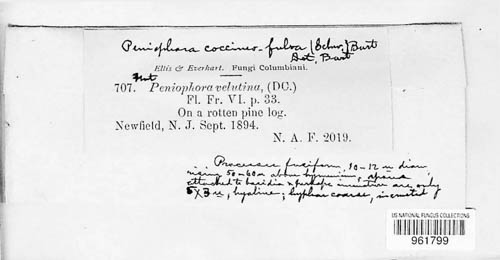 Peniophora coccineo-fulva (Schw.) Burt
Det. Burt
Ellis & Everhart. Fungi Columbiani.
Not
707. Peniophora velutina, (DC.)
Fl. Fr. VI. p. 33.
On a rotten pine log.
Newfield, N. J. Sept. 1894.
N. A. F. 2019.
Processes fusiform, 10-12 u diam
rising 50-60 u above hymenium, spores
attached to basidia & perhaps immature are only
5 X 3 u, hyaline; hyphae coarse, incrusted
US NATIONAL FUNGUS COLLECTIONS
961799